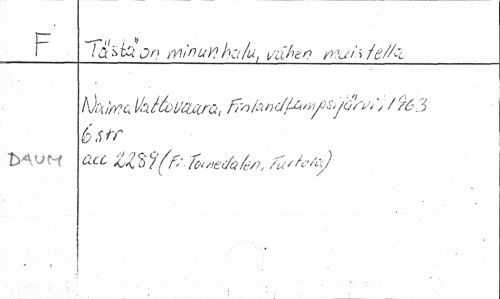 F
Tästä on minun halu, vähen muistella
Naima Vattovaara, Finland, Lampsijärvi, 1963
6 str
DAUM
acc 2289 (Fi. Tornedalen, Turtola)